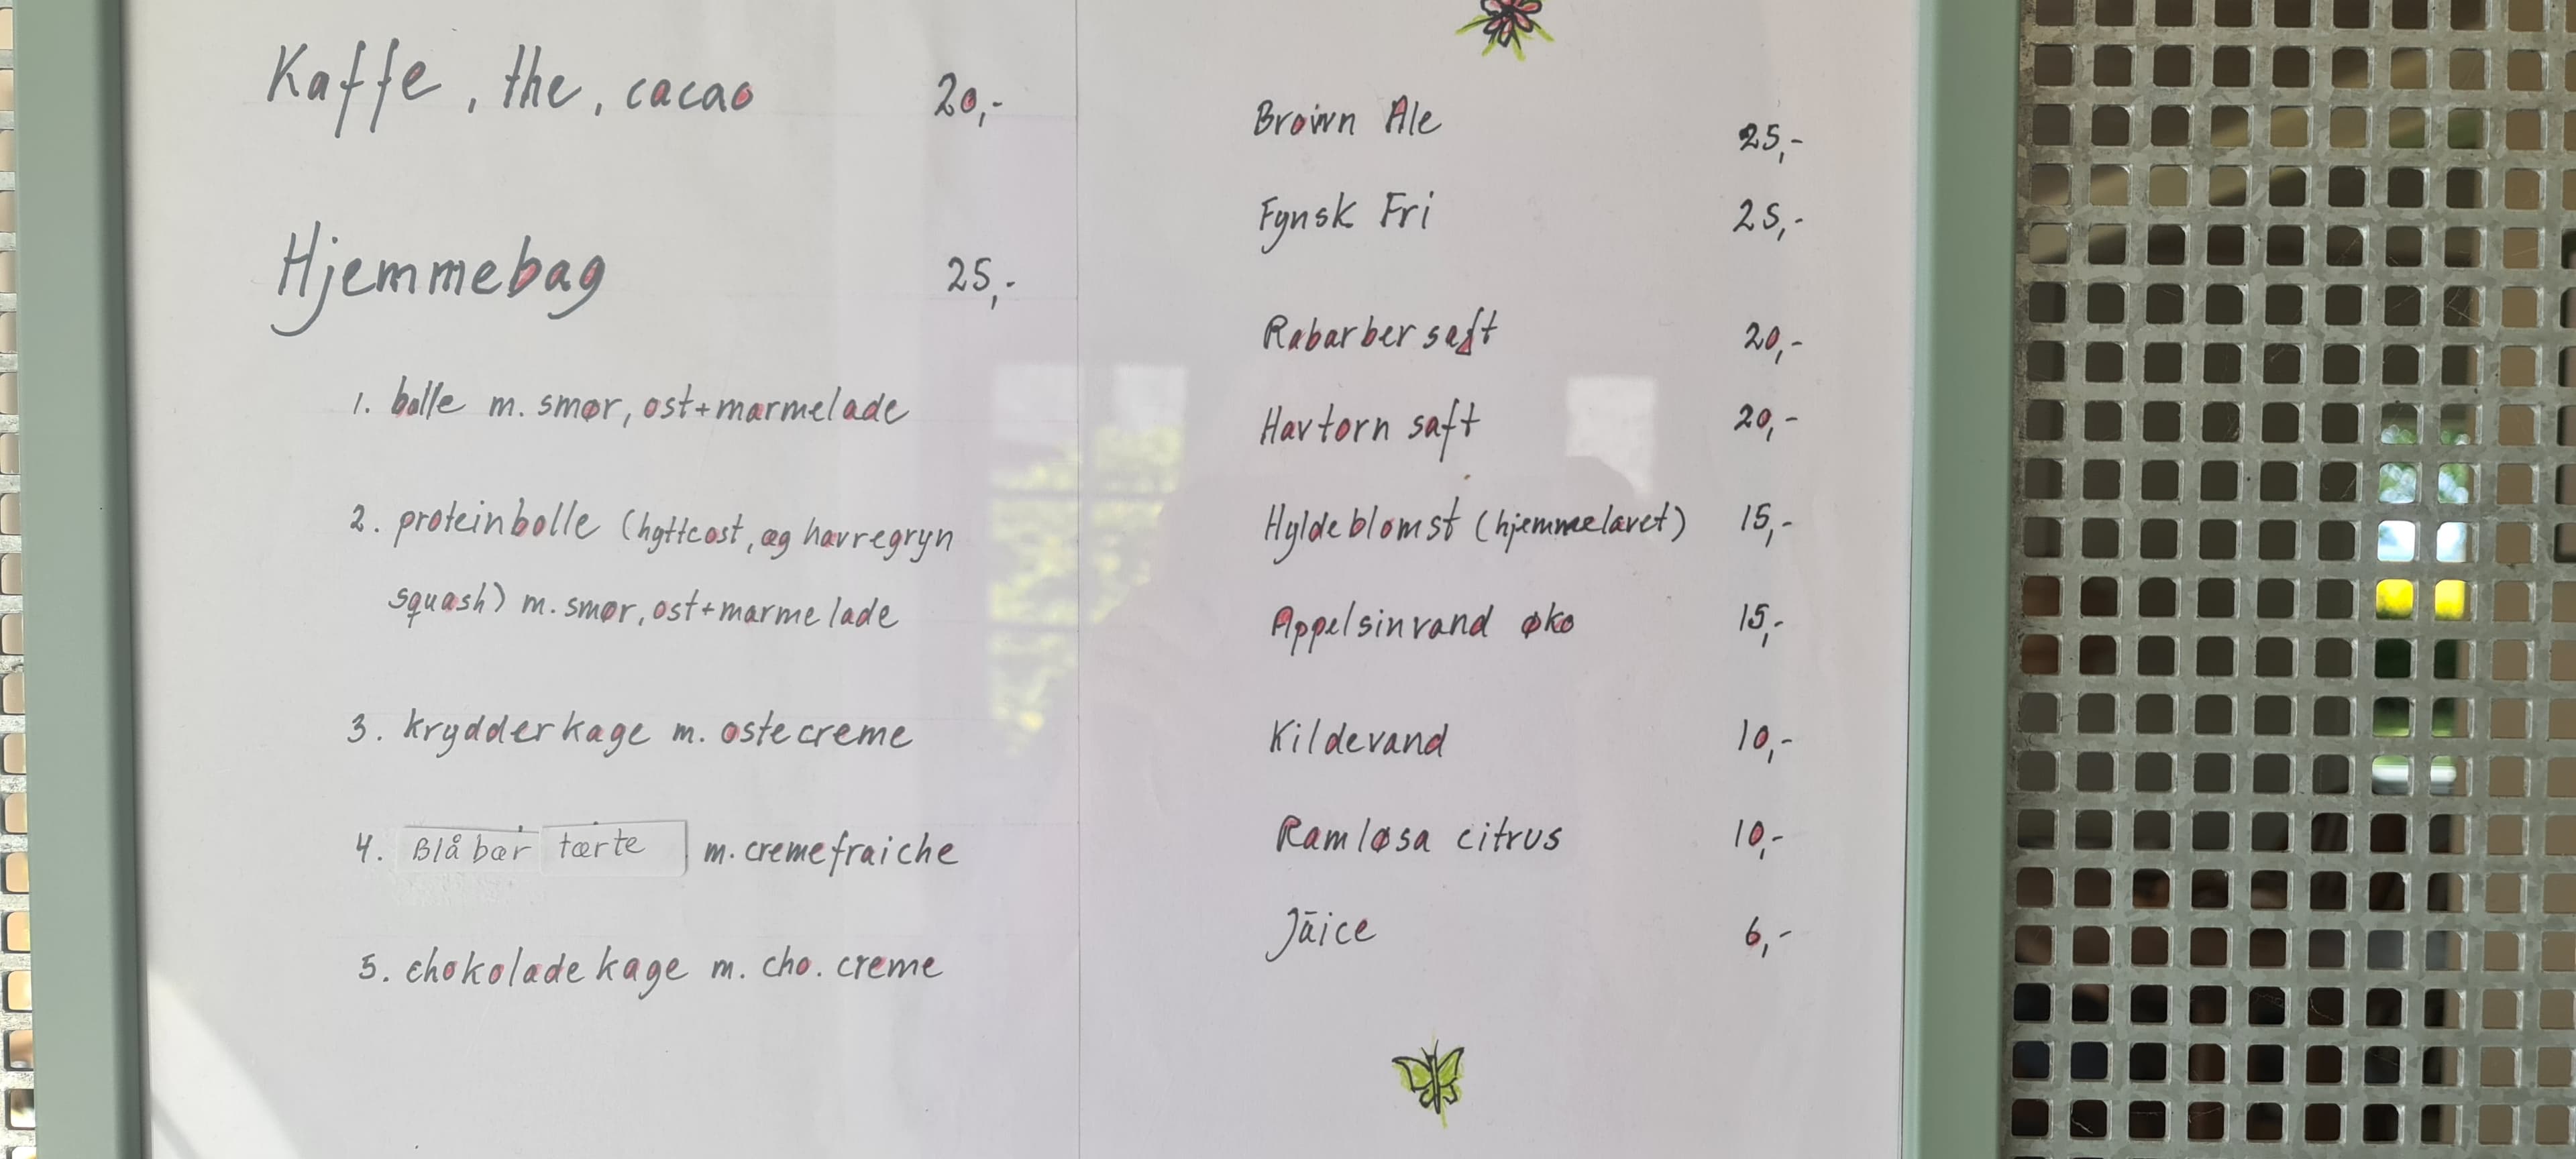 Kaffe, the, cacao 20,-
Hjemmebag 25,-
1. bolle m. smør, ost+marmelade
2. proteinbolle (hytteost, æg havregryn
squash) m. smør, ost+marmelade
3. krydderkage m. ostecreme
4. Blåbær tærte m. cremefraiche
5. chokoladekage m. cho. creme
Brown Ale 25,-
Fynsk Fri 25,-
Rabarber saft 20,-
Havtorn saft 20,-
Hyldeblomst (hjemmelavet) 15,-
Appelsinvand øko 15,-
Kildevand 10,-
Ramløsa citrus 10,-
Jāice 6,-